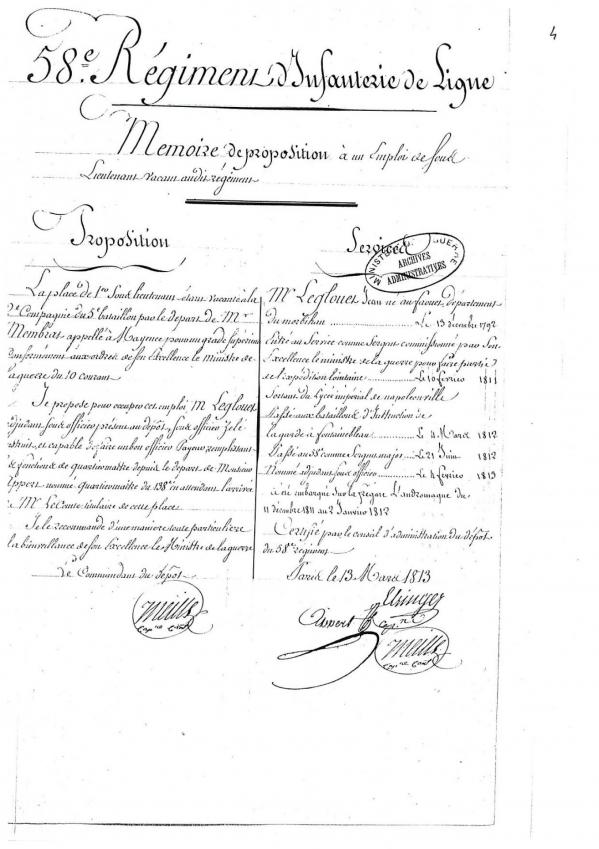 4
58e. Régiment d'Infanterie de Ligne
Memoire de proposition à un Emploi de Sous
Lieutenant vacant audit régiment
Proposition
La place de 1er Sous Lieutenant étant vacante à la
2e Compagnie du 5e bataillon par le depart de Mr
Membrat appellé à Mayence pour un grade supérieur
Conformément aux ordres de son Excellence le ministre de
la guerre du 10 courant
Je propose pour occuper cet emploi M. Leglouet
adjudant sous officier, présent au dépôt, sous officier zelé
instruit, et capable de faire un bon officier Payeur remplissant
les fonctions de quartier maitre depuis le depart de Monsieur
Appert nommé quartier maitre du 138e en attendant l'arrivée
de Mr Le Conte titulaire de cette place
Je le recommande d'une manière toute particuliere
à la bienveillance de Son Excellence le Ministre de la guerre
Le Commandant du Dépôt
Services
MINISTÈRE GUERRE
ARCHIVES
ADMINISTRATIVES
Mr Leglouet Jean né au faouet, département
du morbihan Le 13 décembre 1792
Entré au Service comme Sergent commissionné par Son
Excellence le ministre de la guerre pour faire partie
de l'expédition lointaine Le 10 février 1811
Sortant du Lycée impérial de napoleonville
Passé aux bataillons d'Instruction de
la garde à fontainebleau Le 4 Mars 1812
Passé au 58e comme Sergent major Le 21 Juin 1812
Nommé adjudant sous officier Le 4 février 1813
a été embarqué sur la frégate L'andromaque du
11 décembre 1811 au 2 Janvier 1812
Certifié par le conseil d'administration du Dépôt
du 58e régiment
Paris le 13 Mars 1813
Appert